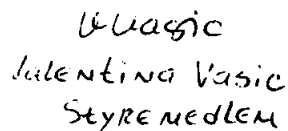 VVasic
Valentina Vasic
Styremedlem